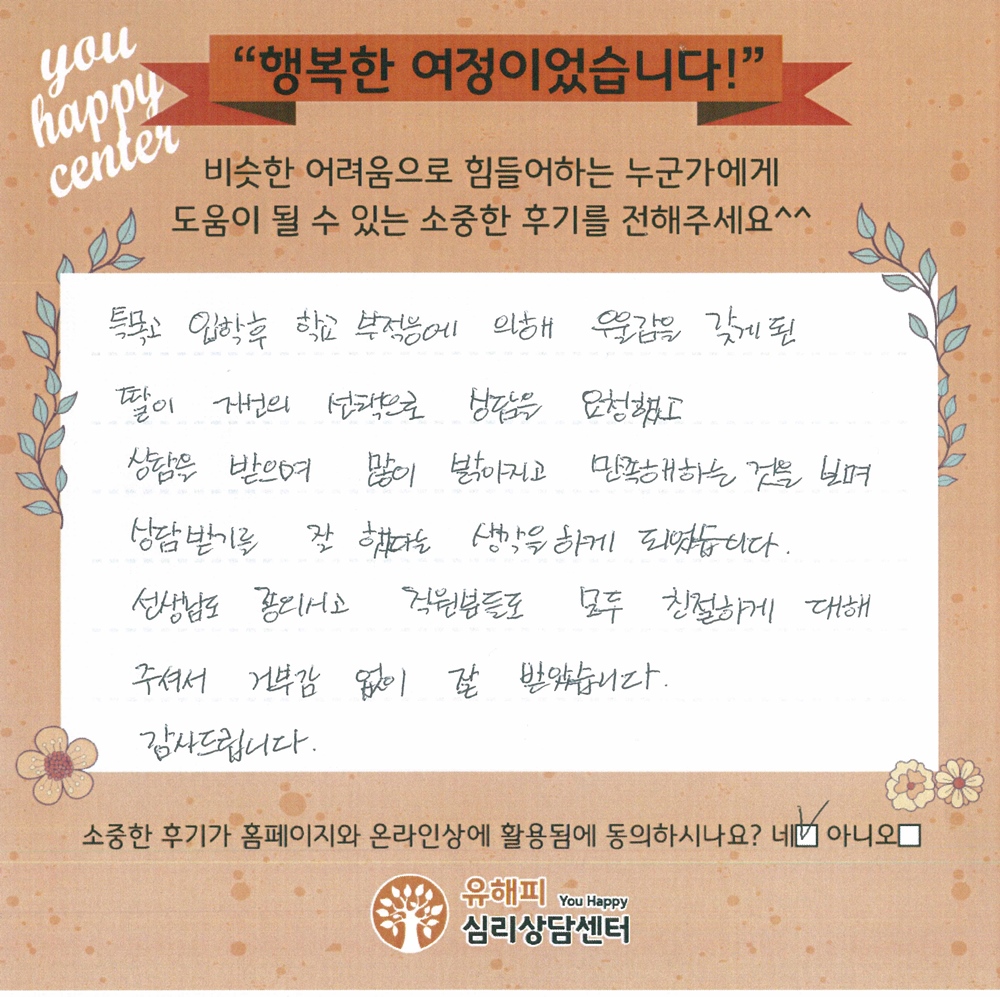 you
happy
center
“행복한 여정이었습니다!”
비슷한 어려움으로 힘들어하는 누군가에게
도움이 될 수 있는 소중한 후기를 전해주세요^^
특목고 입학후 학교 부적응에 의해 우울감을 갖게 된
딸이 자신의 선택으로 상담을 요청했고
상담을 받으며 많이 밝아지고 만족해하는 것을 보며
상담받기를 잘 했다는 생각을 하게 되었습니다.
선생님도 직원분들도 모두 친절하게 대해
주셔서 거부감 없이 잘 받았습니다.
감사드립니다.
소중한 후기가 홈페이지와 온라인상에 활용됨에 동의하시나요? 네 아니오
유해피 You Happy
심리상담센터